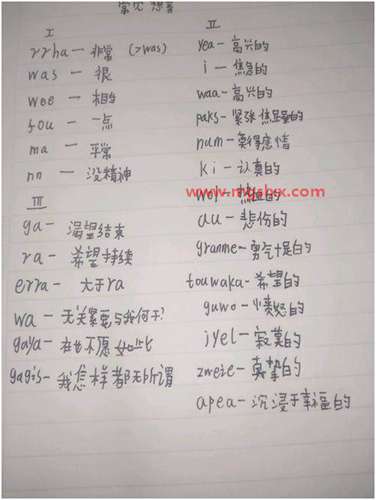 常见想音
I
rrha — 非常 (>was)
was — 很
wee — 相当
fou — 一点
ma — 平常
nn — 没精神
III
ga — 渴望结束
ra — 希望持续
erra — 大于ra
wa — 无关紧要与我何干?
gaya — 再也不愿如此
gagis — 我怎样都无所谓
II
yea — 高兴的
i — 焦急的
waa — 高兴的
paks — 紧张
num — 莫得感情
ki — 认真的
www.mgshxx.com
au — 悲伤的
granme — 勇气十足的
touwaka — 希望的
guwo — 愤怒的
jyel — 寂寞的
zweie — 真挚的
apea — 沉浸于幸福的